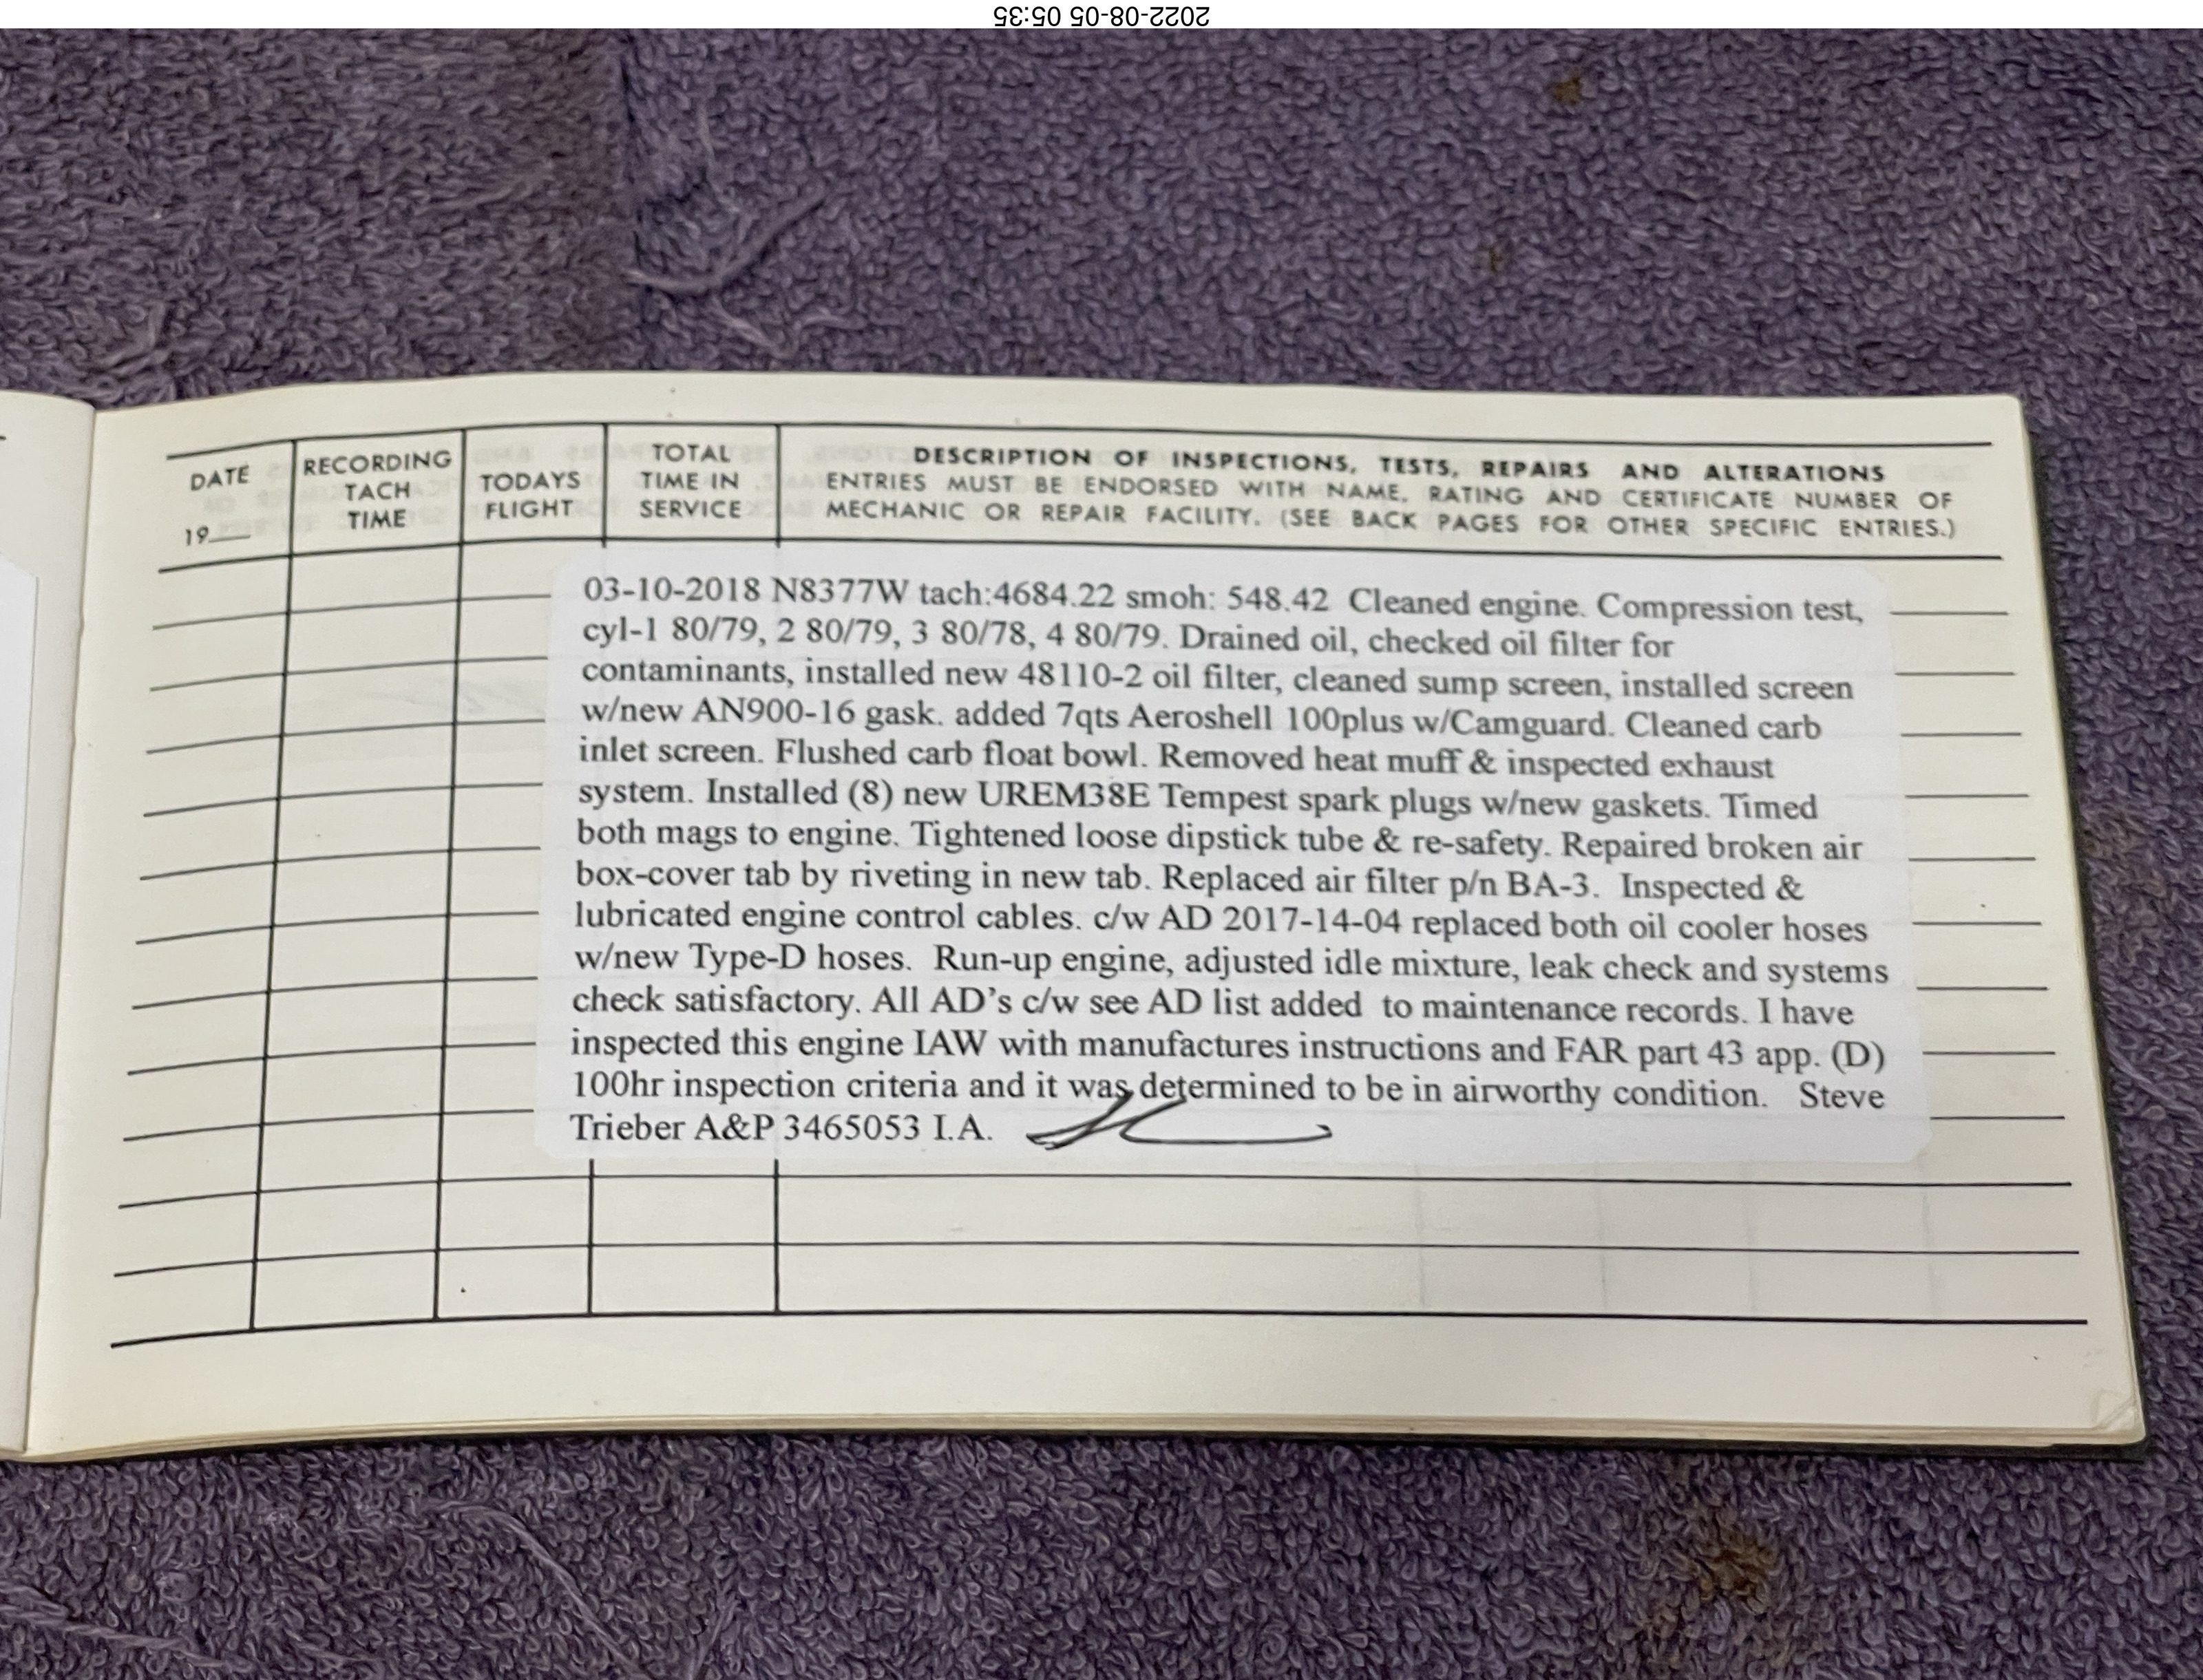 2022-08-05 05:35
DATE
19
RECORDING
TACH
TIME
TODAYS
FLIGHT
TOTAL
TIME IN
SERVICE
DESCRIPTION OF INSPECTIONS, TESTS, REPAIRS AND ALTERATIONS
ENTRIES MUST BE ENDORSED WITH NAME, RATING AND CERTIFICATE NUMBER OF
MECHANIC OR REPAIR FACILITY. (SEE BACK PAGES FOR OTHER SPECIFIC ENTRIES.)
03-10-2018 N8377W tach:4684.22 smoh: 548.42 Cleaned engine. Compression test,
cyl-1 80/79, 2 80/79, 3 80/78, 4 80/79. Drained oil, checked oil filter for
contaminants, installed new 48110-2 oil filter, cleaned sump screen, installed screen
w/new AN900-16 gask. added 7qts Aeroshell 100plus w/Camguard. Cleaned carb
inlet screen. Flushed carb float bowl. Removed heat muff & inspected exhaust
system. Installed (8) new UREM38E Tempest spark plugs w/new gaskets. Timed
both mags to engine. Tightened loose dipstick tube & re-safety. Repaired broken air
box-cover tab by riveting in new tab. Replaced air filter p/n BA-3. Inspected &
lubricated engine control cables. c/w AD 2017-14-04 replaced both oil cooler hoses
w/new Type-D hoses. Run-up engine, adjusted idle mixture, leak check and systems
check satisfactory. All AD's c/w see AD list added to maintenance records. I have
inspected this engine IAW with manufactures instructions and FAR part 43 app. (D)
100hr inspection criteria and it was determined to be in airworthy condition. Steve
Trieber A&P 3465053 I.A.